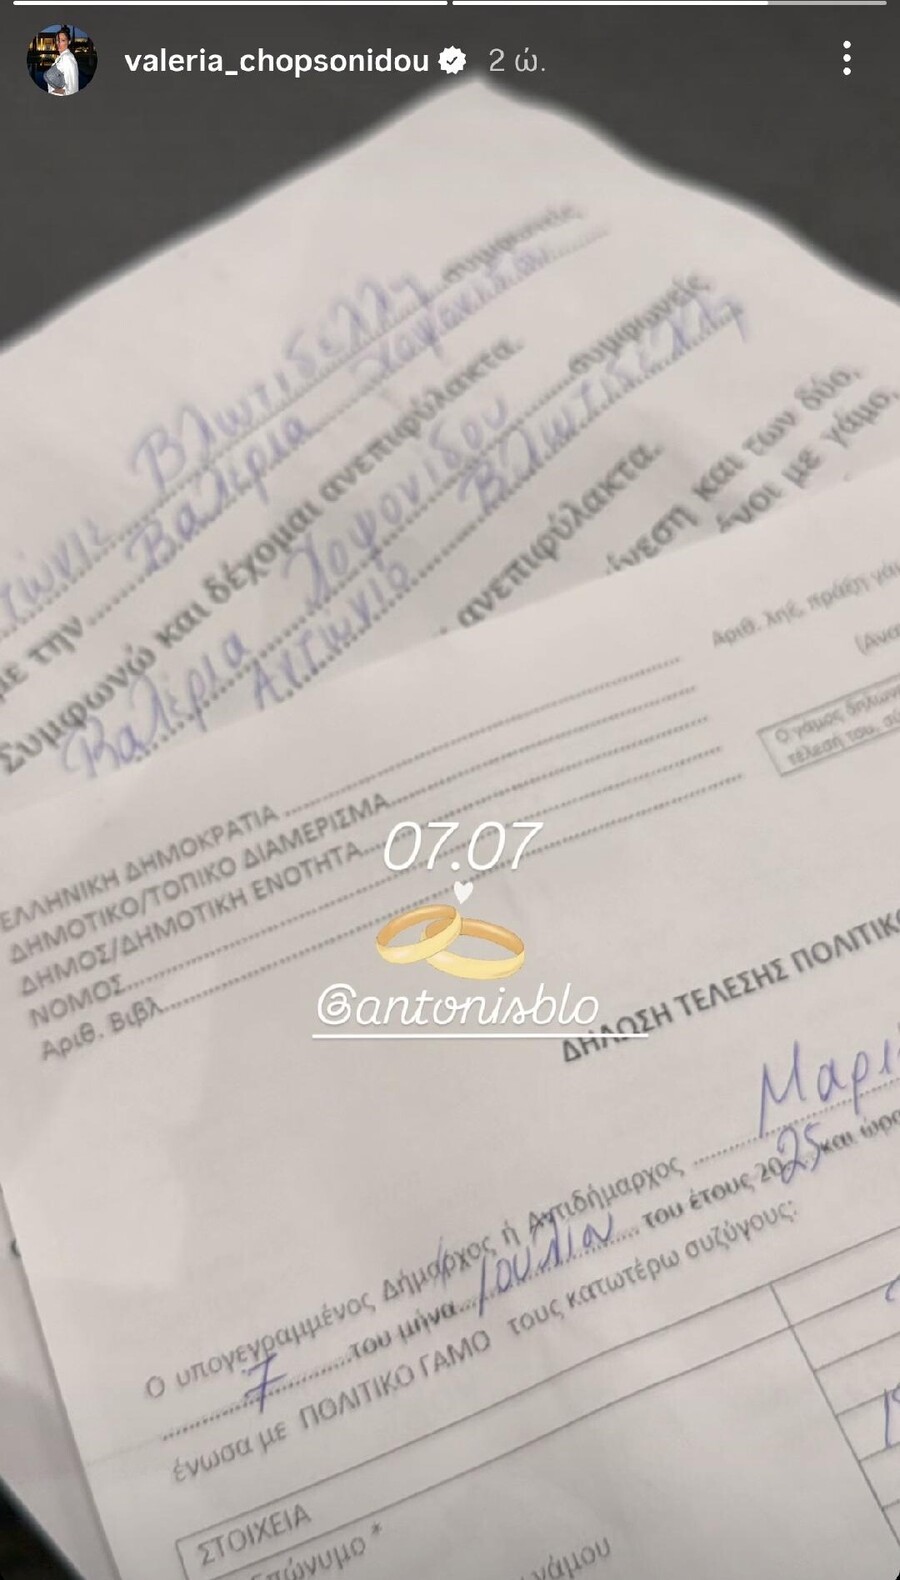 valeria_chopsonidou 2 ώ.
Βλωτιδέλλη συμφωνείς
με την Βαλέρια Χοψονίδου
Συμφωνώ και δέχομαι ανεπιφύλακτα.
Βαλέρια Χοψονίδου συμφωνείς
Αντώνιο Βλωτιδέλλη
ανεπιφύλακτα.
και των δύο,
με γάμο.
Αριθ. ληξ. πράξη
ΕΛΛΗΝΙΚΗ ΔΗΜΟΚΡΑΤΙΑ
ΔΗΜΟΤΙΚΟ/ΤΟΠΙΚΟ ΔΙΑΜΕΡΙΣΜΑ
ΔΗΜΟΣ/ΔΗΜΟΤΙΚΗ ΕΝΟΤΗΤΑ
ΝΟΜΟΣ
Αριθ. Βιβλ.
Ο γάμος
07.07
@antonisblo
ΔΗΛΩΣΗ ΤΕΛΕΣΗΣ ΠΟΛΙΤΙΚΟ
Ο υπογεγραμμένος Δήμαρχος ή Αντιδήμαρχος Μαρι
7 του μήνα Ιουλίου του έτους 2025 και ώρα
ένωσα με ΠΟΛΙΤΙΚΟ ΓΑΜΟ τους κατωτέρω συζύγους:
ΣΤΟΙΧΕΙΑ
Επώνυμο *
γάμου